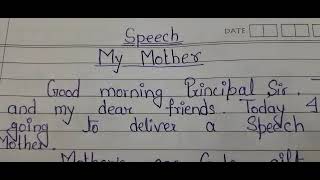 Speech
DATE
My Mother
Good morning Principal Sir.
and my dear friends. Today
going to deliver a Speech
Mother.
Mother's are God's gift